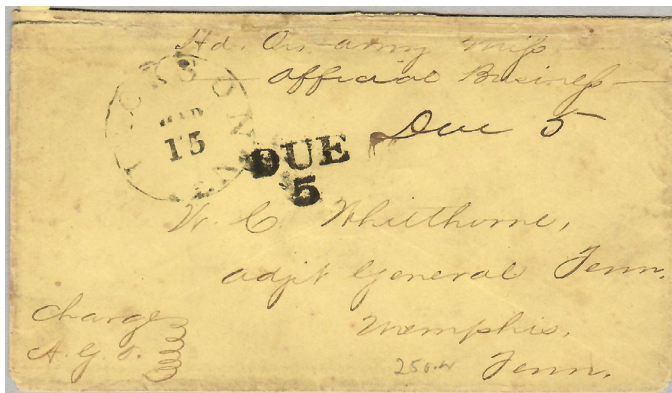 Hd. Qrs. Army Miss
Official Business
Due 5
JACKSON
MAR
15
DUE
5
W. C. Whitthorne,
adjt General Tenn.
Memphis,
Tenn.
Charge
A. G. O.
250.00